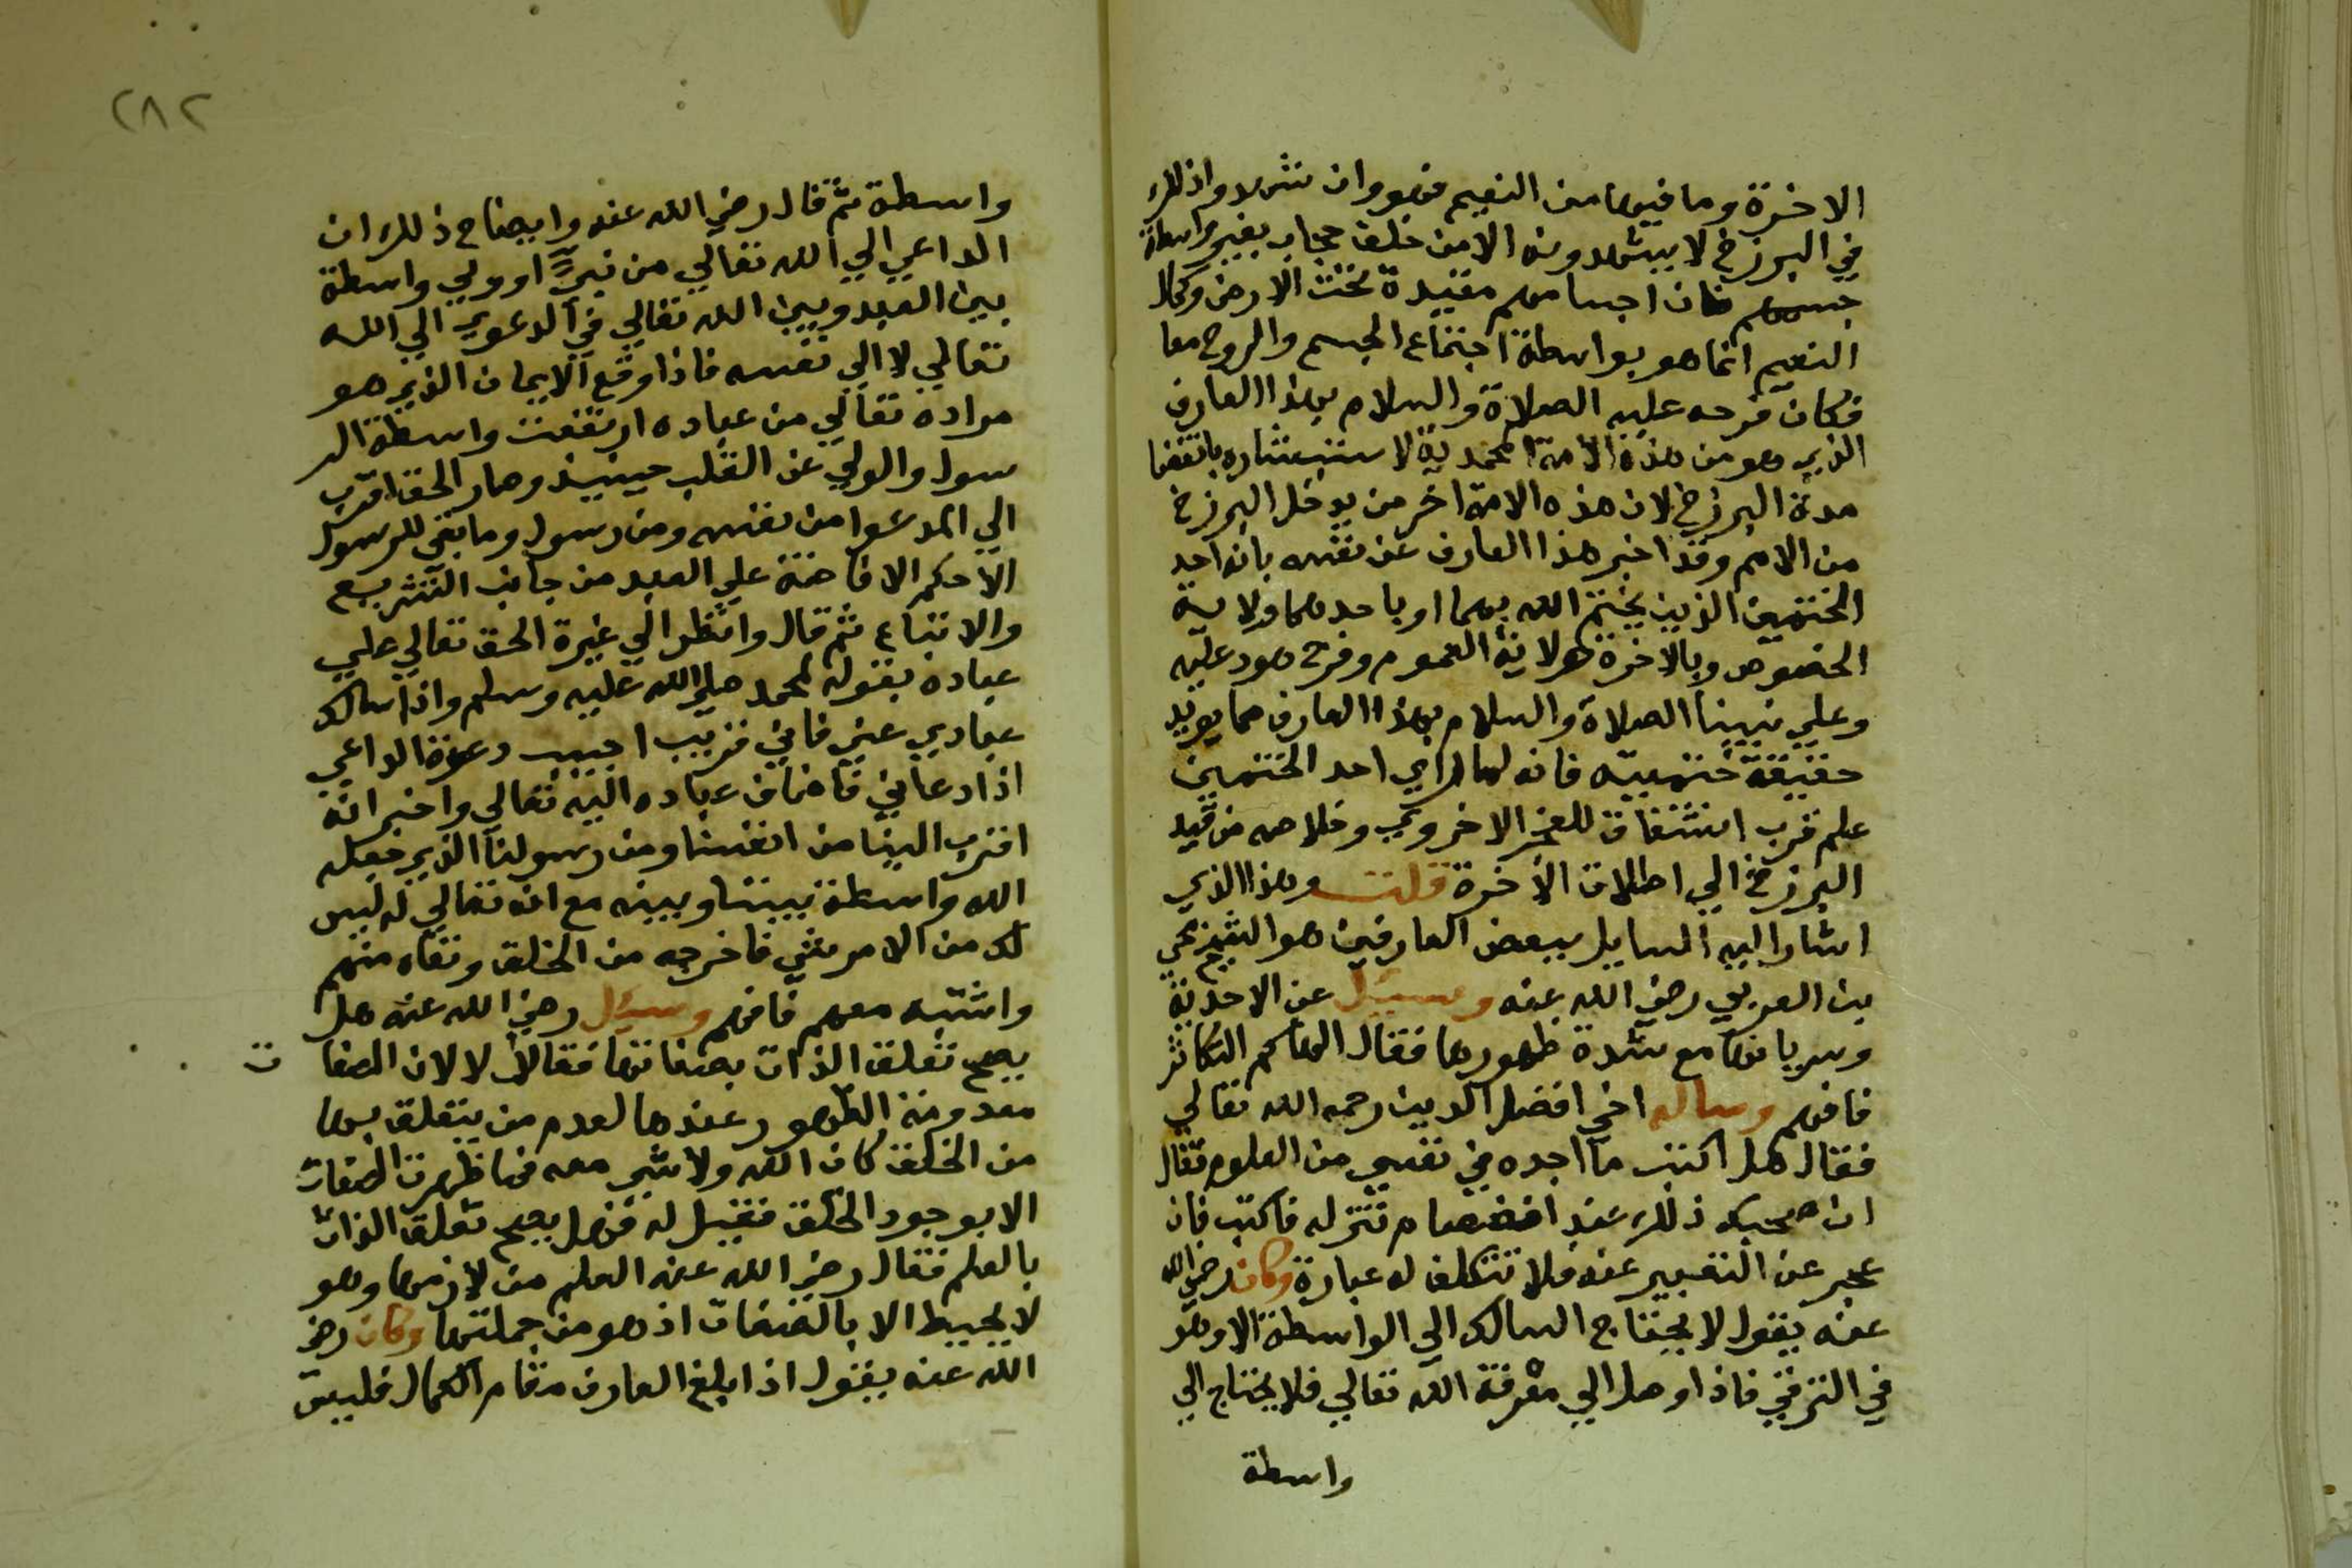 الاخرة وما فيها من النعيم فهو وان شهدوا ذلك
في البرزخ لا يشهدونه الا من خلف حجاب بغير واسطة
جسمهم فان اجسامهم مقيدة تحت الارض وكمال
النعيم انما هو بواسطة اجتماع الجسم والروح معا
فكان فرحه عليه الصلاة والسلام بهذا العارف
الذي هو من هذه الامة المحمدية لاستبشاره بانقضا
مدة البرزخ لان هذه الامة اخر من يدخل البرزخ
من الامم وقد اخبر هذا العارف عن نفسه بانه احد
الختمين الذين يختم الله بهما او باحدهما ولاية
الخصوص وبالاخرة ولاية العموم وفرح هود عليه
وعلي نبينا الصلاة والسلام بهذا العارف مما يويد
حقيقة ختميته فانه لما راي احد الختمين
علم قرب انشقاق الفجر الاخروي وخلاصه من قيد
البرزخ الي اطلاق الاخرة قلت وهذا الذي
اشار اليه السايل ببعض العارفين هو الشيخ محي
بن العربي رضي الله عنه وسئل عن الاحدية
وسريانها مع شدة ظهورها فقال الهاكم التكاثر
فافهم وساله اخي افضل الدين رحمه الله تعالي
فقال هل اكتب ما اجده في نفسي من العلوم فقال
ان صحبك ذلك عند انفصام تنزله فاكتب فان
عجز عن التعبير عنه فلا تتكلف له عبارة وكان رضي الله
عنه يقول لا يحتاج السالك الي الواسطة الا وهو
في الترقي فاذا وصل الي معرفة الله تعالي فلا يحتاج الي
واسطة
٢٨٢
واسطة ثم قال رضي الله عنه وايضاح ذلك ان
الداعي الي الله تعالي من نبي او ولي واسطة
بين العبد وبين الله تعالي في الدعوي الي الله
تعالي لا الي نفسه فاذا وقع الايمان الذي هو
مراده تعالي من عباده ارتفعت واسطة الر
سول والولي عن القلب حينيذ وصار الحق اقرب
الي المدعوا من نفسه ومن رسول وما بقي للرسول
الا حكم الافاضة علي العبد من جانب التشريع
والاتباع ثم قال وانظر الي غيرة الحق تعالي علي
عباده بقوله لمحمد صلي الله عليه وسلم واذا سالك
عبادي عني فاني قريب اجيب دعوة الداعي
اذا دعاني فاضاف عباده اليه تعالي واخبر انه
اقرب الينا من انفسنا ومن رسولنا الذي جعله
الله واسطة بيننا وبينه مع انه تعالي له ليس
لك من الامر شي فاخرجه من الخلق ونفاه منهم
واشبه معهم فافهم وسئل رضي الله عنه هل
يصح تعلق الذات بصفاتها فقال لا لان الصفا
ت
معدومة الظهور عندها لعدم من يتعلق بها
من الخلق كان الله ولا شي معه فما ظهرت الصفات
الا بوجود الخلق فقيل له فهل يصح تعلق الذات
بالعلم فقال رضي الله عنه العلم من لازمها وهو
لا يحيط الا بالصفات اذ هو من جملتها وكان رضي
الله عنه يقول اذا بلغ العارف مقام الكمال فليس